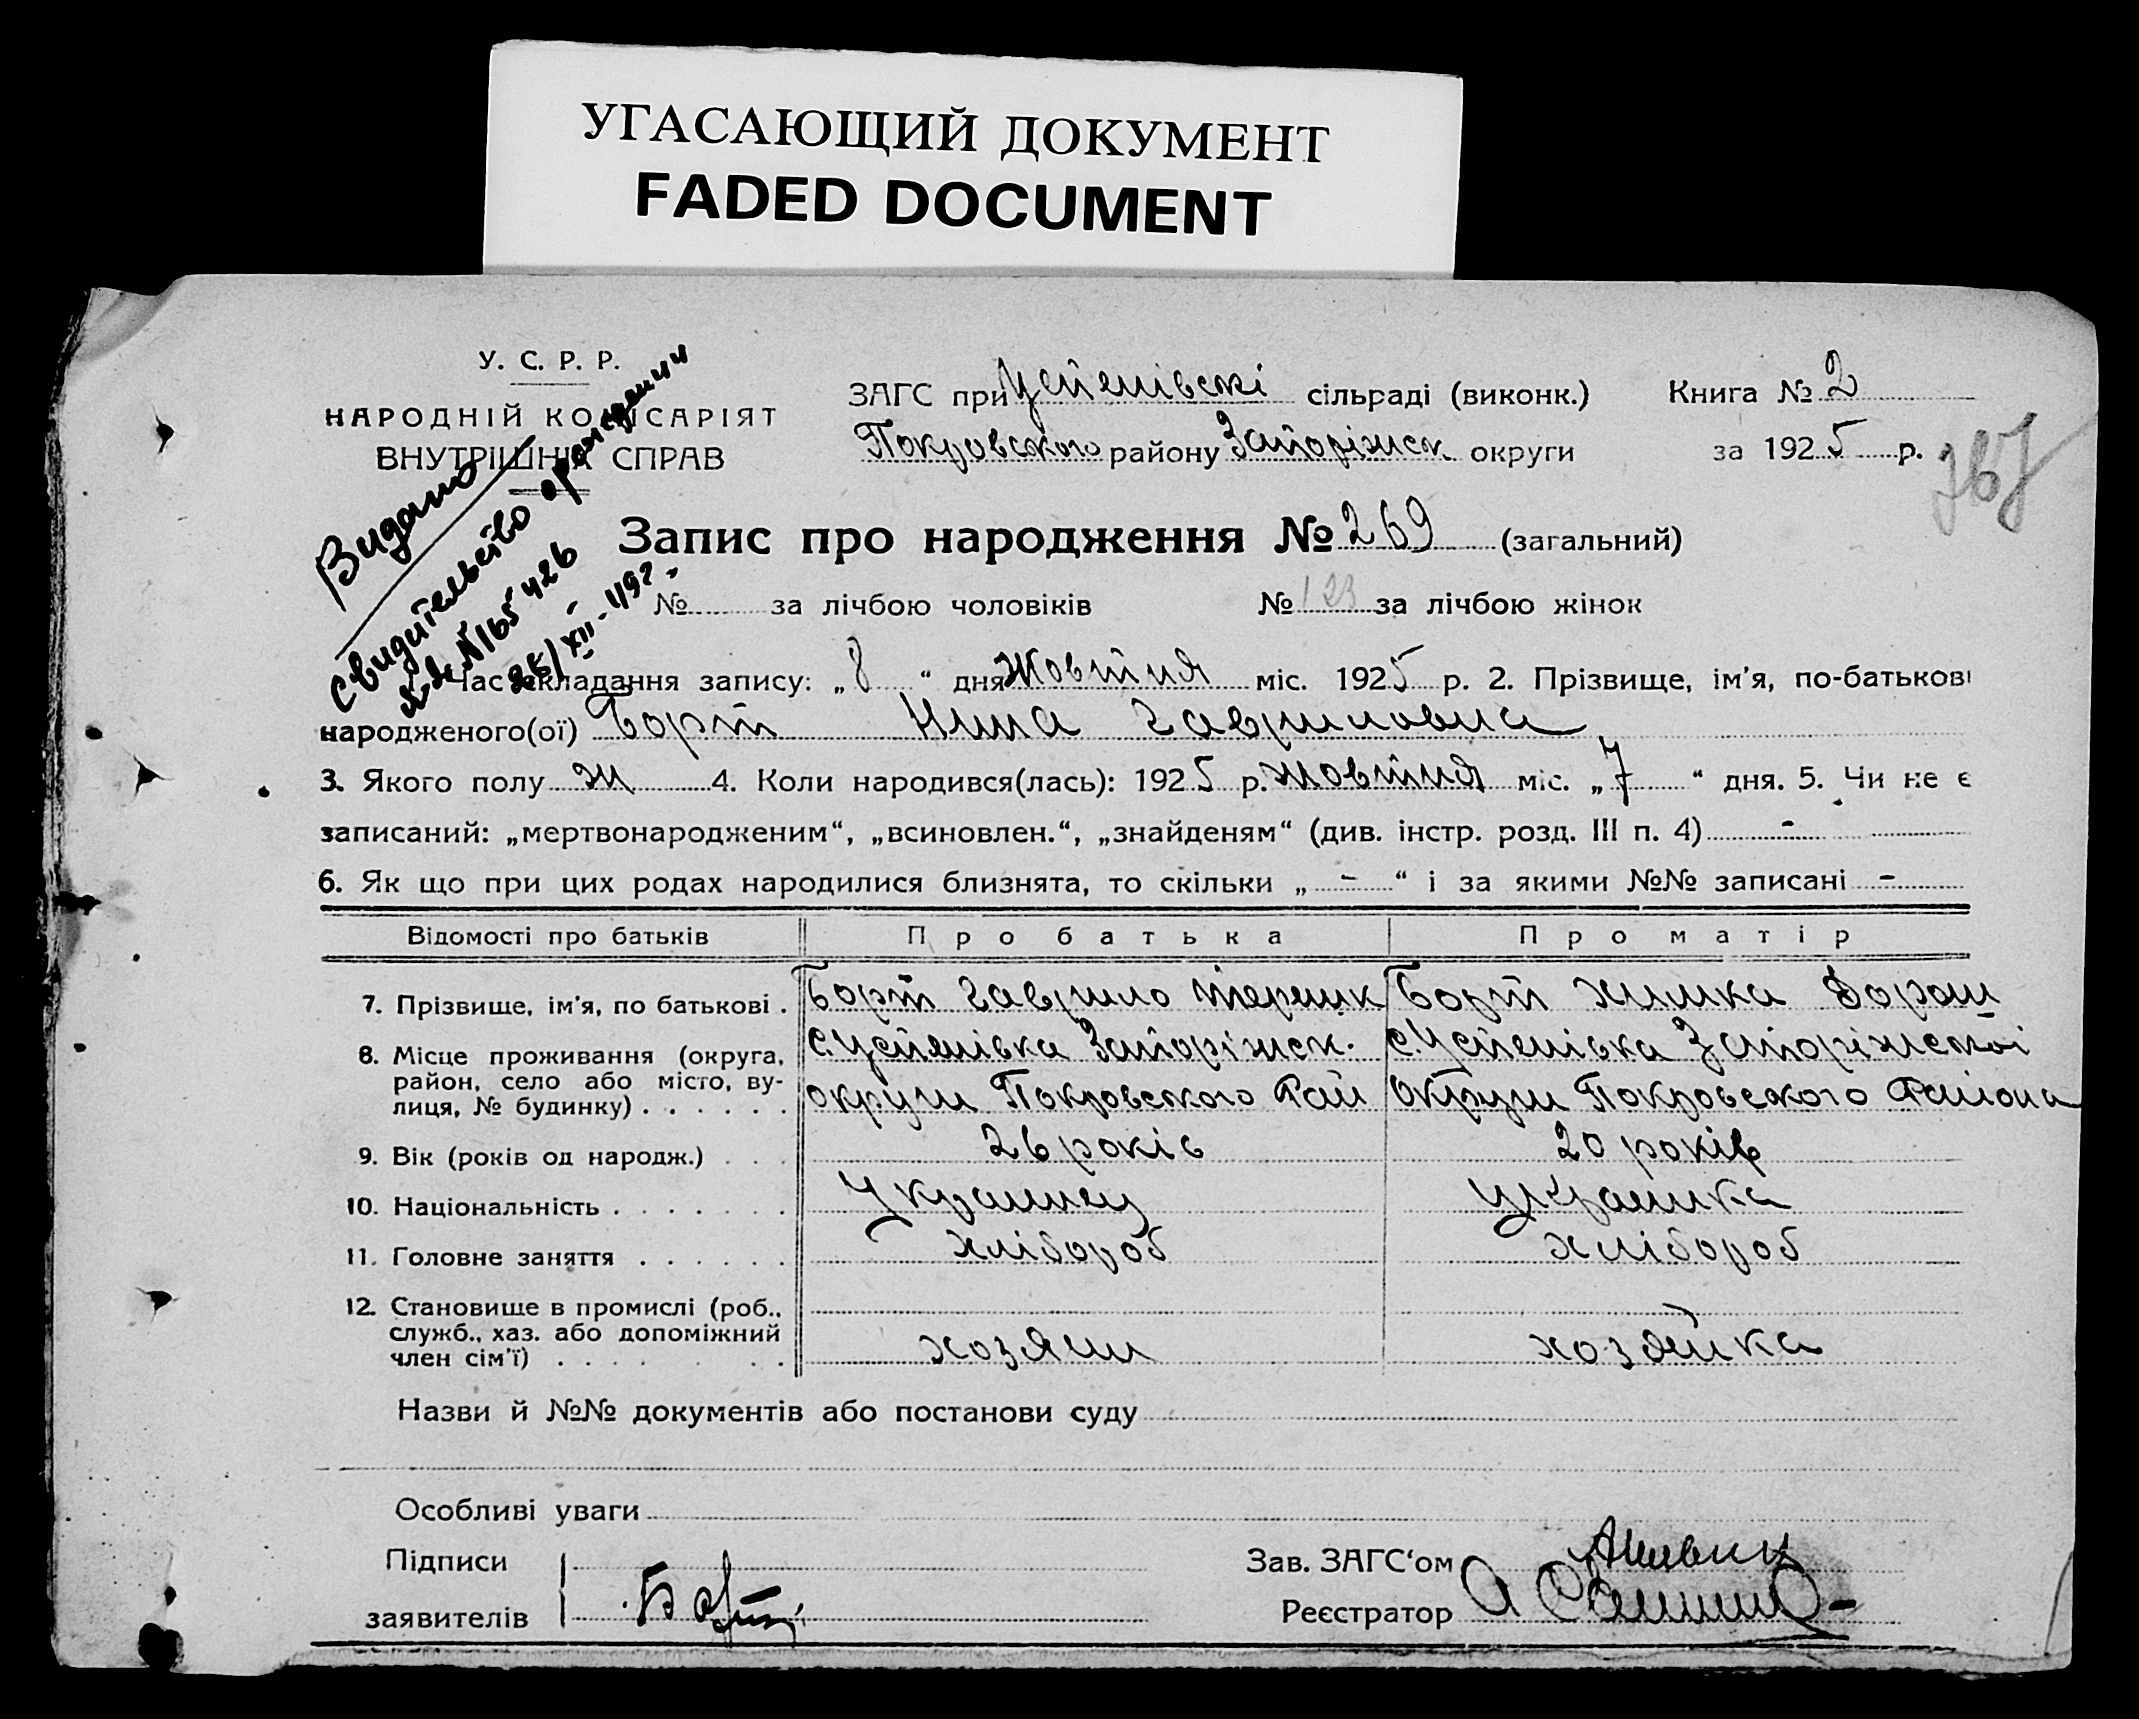 УГАСАЮЩИЙ ДОКУМЕНТ
FADED DOCUMENT
У. С. Р. Р.
НАРОДНІЙ КОМІСАРІЯТ
ВНУТРІШНІХ СПРАВ
Видано
свидительство о рождении
N 165426
XII
ЗАГС при Успенівскі сільраді (виконк.) Книга № 2
Покровського району Запоріжск округи за 1925 р.
Запис про народження № 269 (загальний)
№ за лічбою чоловіків № 123 за лічбою жінок
1. Час складання запису: „8“ дня Жовтня міс. 1925 р. 2. Прізвище, ім’я, по-батькові
народженого(ої) Борт Нина Гавриловна
3. Якого полу ж 4. Коли народився(лась): 1925 р. Жовтня міс. „7“ дня. 5. Чи не є
записаний: „мертвонародженим“, „всиновлен.“, „знайденям“ (див. інстр. розд. III п. 4) -
6. Як що при цих родах народилися близнята, то скільки „-“ і за якими №№ записані -
Відомості про батьків Про батька Про матір
7. Прізвище, ім’я, по батькові . Борт Гаврило Терешк Борт Химка Дорош
8. Місце проживання (округа, с. Успенівка Запоріжск. с. Успенівка Запоріжскої
район, село або місто, ву-
лиця, № будинку) . . . . . . округи Покровського Рай округи Покровського Района
9. Вік (років од народж.) . . . 26 років 20 років
10. Національність . . . . . . . Украинец украинка
11. Головне заняття . . . . . . хлібороб хлібороб
12. Становище в промислі (роб.,
служб., хаз. або допоміжний
член сім’ї) . . . . . . . хозяин хозяйка
Назви й №№ документів або постанови суду
Особливі уваги
Підписи Зав. ЗАГС‘ом
заявителів Борт Реєстратор